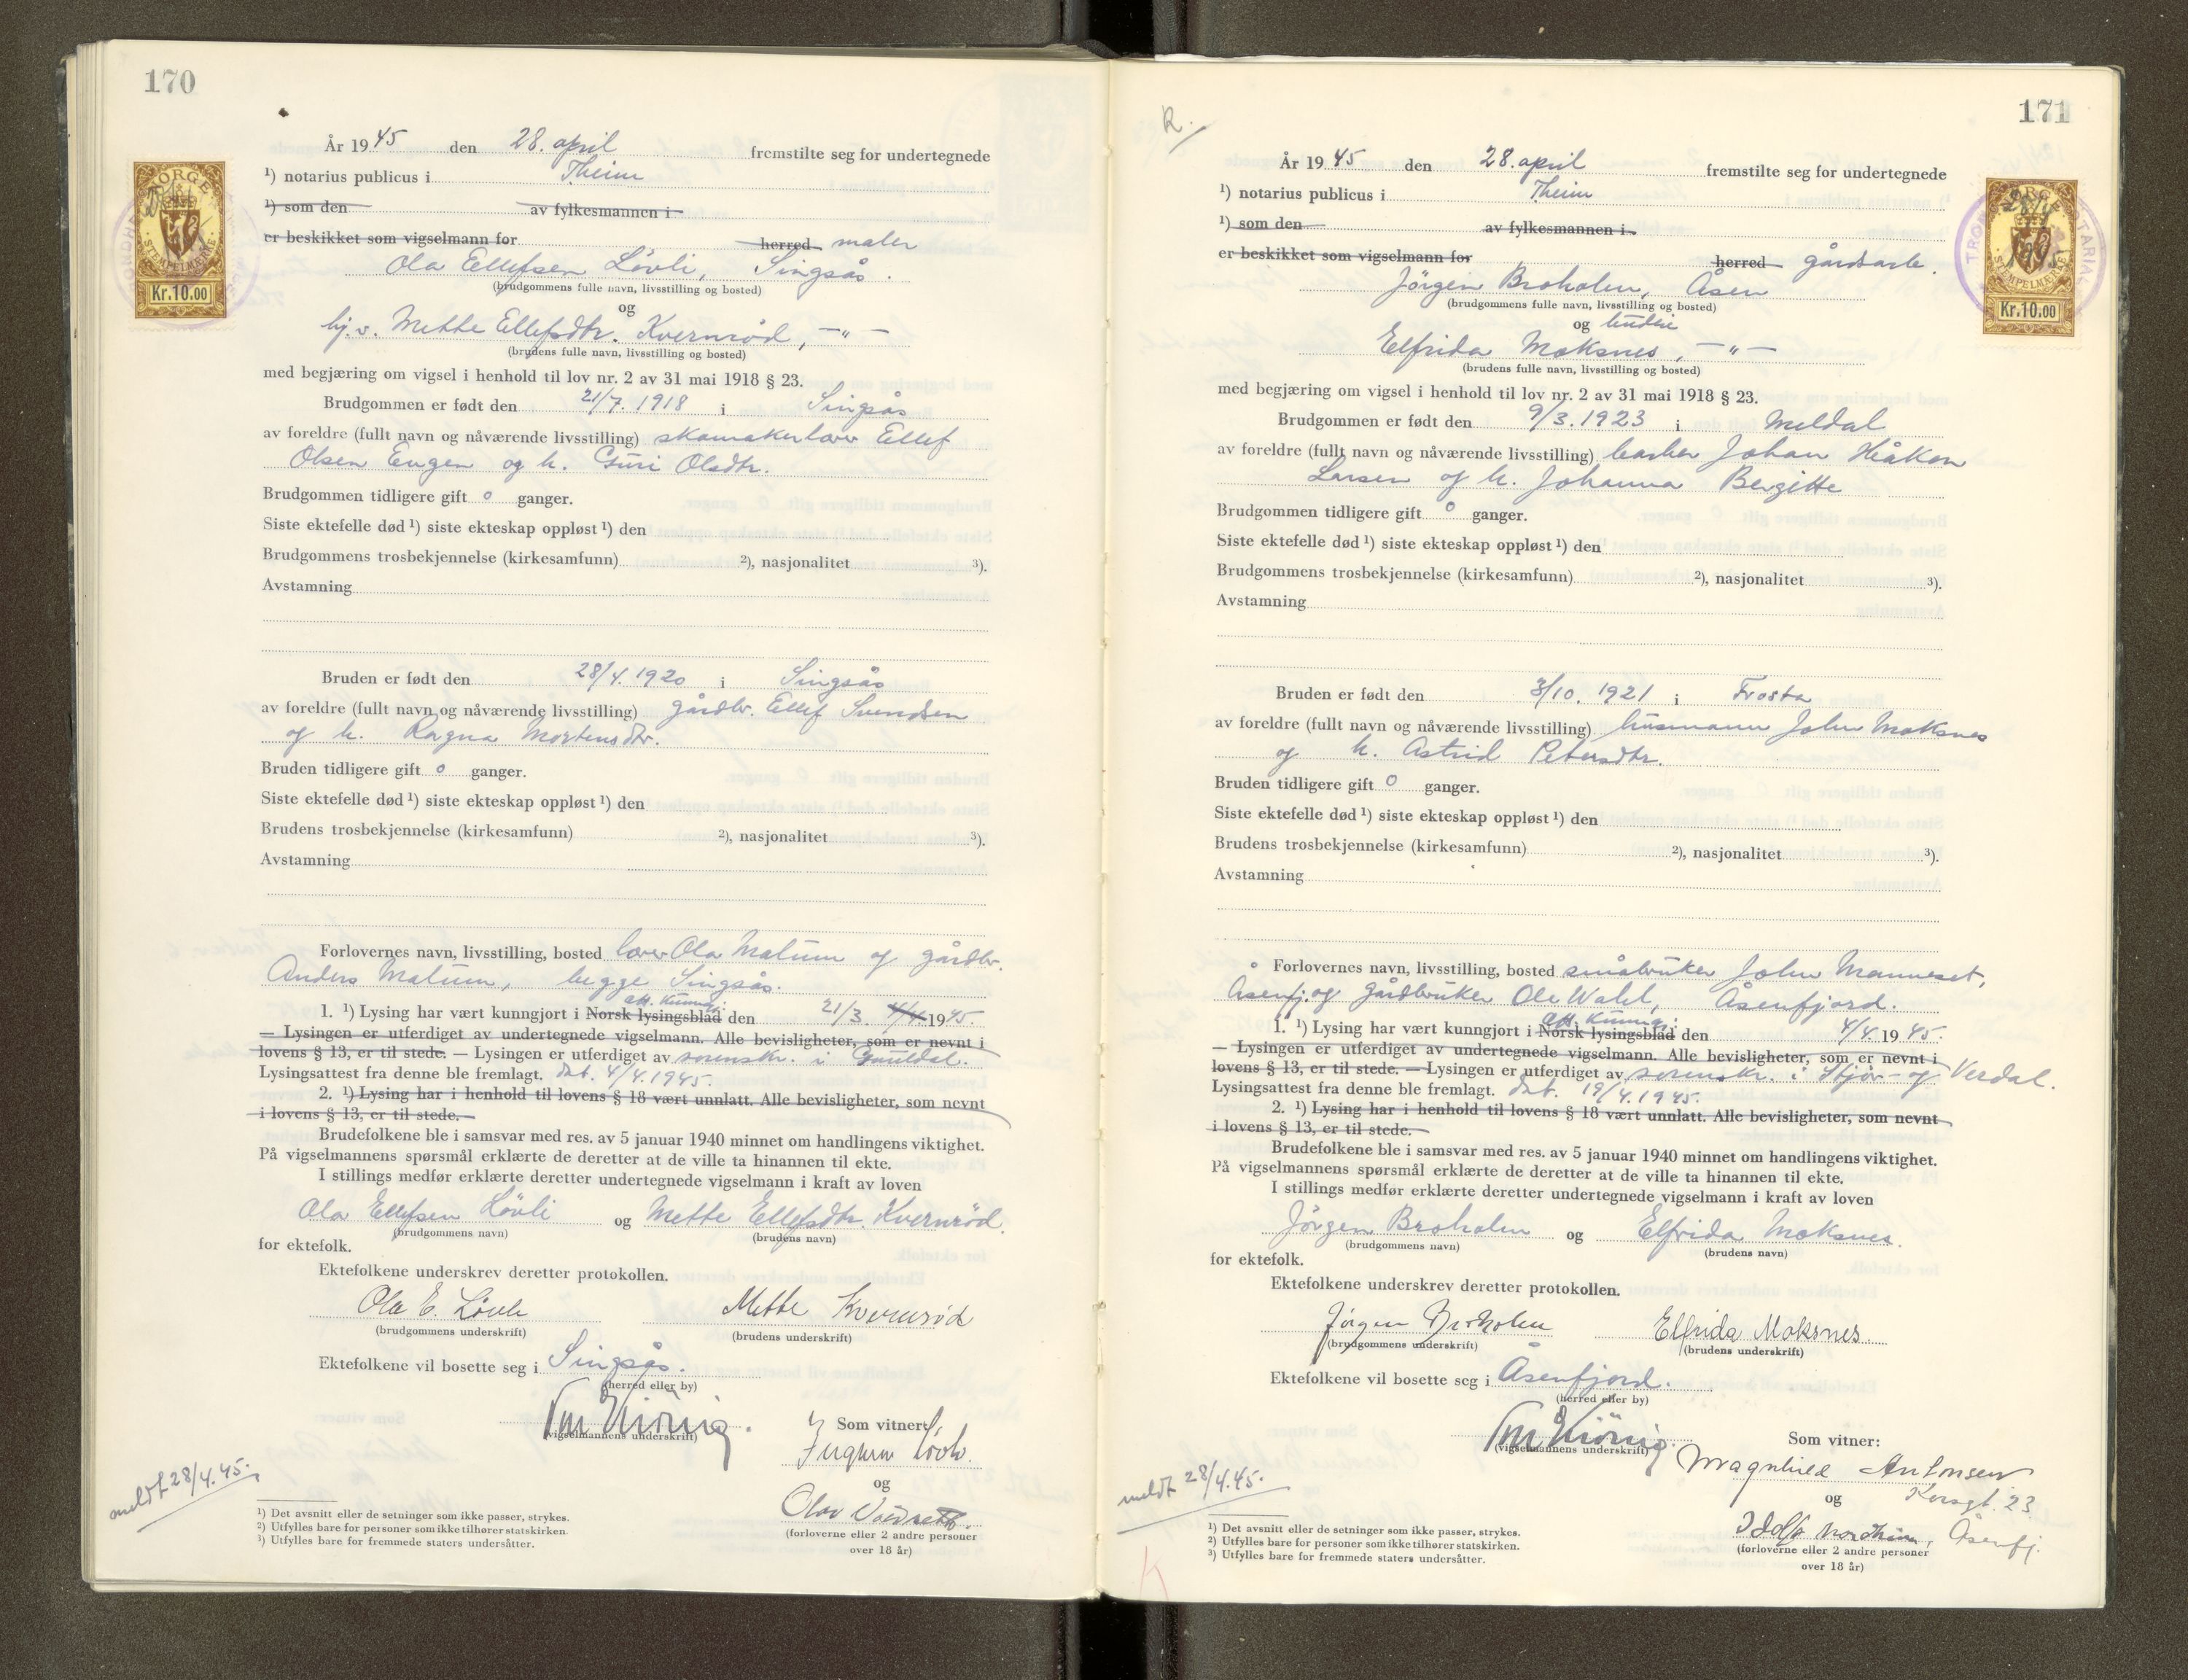 170
År 1945 den 28. april fremstilte seg for undertegnede
¹) notarius publicus i Theim
¹) som den av fylkesmannen i
er beskikket som vigselmann for herred maler
Ola Ellefsen Lövli, Singsås.
(brudgommens fulle navn, livsstilling og bosted)
og
hj.v. Mette Ellefsdtr. Kvernröd, —"—
(brudens fulle navn, livsstilling og bosted)
med begjæring om vigsel i henhold til lov nr. 2 av 31 mai 1918 § 23.
Brudgommen er født den 21/7. 1918 i Singsås
av foreldre (fullt navn og nåværende livsstilling) skomaker Ellef
Olsen Engen og h. Guri Olsdtr.
Brudgommen tidligere gift 0 ganger.
Siste ektefelle død ¹) siste ekteskap oppløst ¹) den
Brudgommens trosbekjennelse (kirkesamfunn) ²), nasjonalitet ³).
Avstamning
Bruden er født den 28/4. 1920 i Singsås
av foreldre (fullt navn og nåværende livsstilling) gårdbr. Ellef Svendsen
og h. Ragna Mortensdtr.
Bruden tidligere gift 0 ganger.
Siste ektefelle død ¹) siste ekteskap oppløst ¹) den
Brudens trosbekjennelse (kirkesamfunn) ²), nasjonalitet ³).
Avstamning
Forlovernes navn, livsstilling, bosted Ola Matum og gårdbr.
Anders Matum, begge Singsås.
off. kunng.
1. ¹) Lysing har vært kunngjort i Norsk lysingsblad den 21/3. 4/4. 1945.
— Lysingen er utferdiget av undertegnede vigselmann. Alle bevisligheter, som er nevnt i
lovens § 13, er til stede. — Lysingen er utferdiget av sorenskr. i Gauldal.
Lysingsattest fra denne ble fremlagt. dat. 4/4.1945.
2. ¹) Lysing har i henhold til lovens § 18 vært unnlatt. Alle bevisligheter, som nevnt
i lovens § 13, er til stede. —
Brudefolkene ble i samsvar med res. av 5 januar 1940 minnet om handlingens viktighet.
På vigselmannens spørsmål erklærte de deretter at de ville ta hinannen til ekte.
I stillings medfør erklærte deretter undertegnede vigselmann i kraft av loven
Ola Ellefsen Lövli og Mette Ellefsdtr. Kvernröd.
(brudgommens navn) (brudens navn)
for ektefolk.
Ektefolkene underskrev deretter protokollen.
Ola E. Lövli Mette Kvernröd
(brudgommens underskrift) (brudens underskrift)
Ektefolkene vil bosette seg i Singsås.
(herred eller by)
(vigselmannens underskrift)
Som vitner:
og
Olav
(forloverne eller 2 andre personer
over 18 år)
meldt 28/4.45.
¹) Det avsnitt eller de setninger som ikke passer, strykes.
²) Utfylles bare for personer som ikke tilhører statskirken.
³) Utfylles bare for fremmede staters undersåtter.
NORGE
STEMPELMERKE
Kr.10.00
171
R.
År 1945 den 28. april fremstilte seg for undertegnede
¹) notarius publicus i Theim
¹) som den av fylkesmannen i
er beskikket som vigselmann for herred gårdsarb.
Jörgen Broholm, Åsen
(brudgommens fulle navn, livsstilling og bosted)
og budeie
Elfrida Moksnes, —"—
(brudens fulle navn, livsstilling og bosted)
med begjæring om vigsel i henhold til lov nr. 2 av 31 mai 1918 § 23.
Brudgommen er født den 9/3. 1923 i Meldal
av foreldre (fullt navn og nåværende livsstilling) Johan Håkon
Larsen og h. Johanna Bergitte
Brudgommen tidligere gift 0 ganger.
Siste ektefelle død ¹) siste ekteskap oppløst ¹) den
Brudgommens trosbekjennelse (kirkesamfunn) ²), nasjonalitet ³).
Avstamning
Bruden er født den 3/10. 1921 i Frosta
av foreldre (fullt navn og nåværende livsstilling) husmann John Moksnes
og h. Astrid Petersdtr.
Bruden tidligere gift 0 ganger.
Siste ektefelle død ¹) siste ekteskap oppløst ¹) den
Brudens trosbekjennelse (kirkesamfunn) ²), nasjonalitet ³).
Avstamning
Forlovernes navn, livsstilling, bosted småbruker John Manneset,
Åsenfj. og gårdbruker Ole Wahl, Åsenfjord.
off. kunng.
1. ¹) Lysing har vært kunngjort i Norsk lysingsblad den 4/4. 1945.
— Lysingen er utferdiget av undertegnede vigselmann. Alle bevisligheter, som er nevnt i
lovens § 13, er til stede. — Lysingen er utferdiget av sorenskr. i Stjör- og Verdal.
Lysingsattest fra denne ble fremlagt. dat. 19/4.1945.
2. ¹) Lysing har i henhold til lovens § 18 vært unnlatt. Alle bevisligheter, som nevnt
i lovens § 13, er til stede. —
Brudefolkene ble i samsvar med res. av 5 januar 1940 minnet om handlingens viktighet.
På vigselmannens spørsmål erklærte de deretter at de ville ta hinannen til ekte.
I stillings medfør erklærte deretter undertegnede vigselmann i kraft av loven
Jörgen Broholm og Elfrida Moksnes.
(brudgommens navn) (brudens navn)
for ektefolk.
Ektefolkene underskrev deretter protokollen.
Jörgen Broholm Elfrida Moksnes.
(brudgommens underskrift) (brudens underskrift)
Ektefolkene vil bosette seg i Åsenfjord.
(herred eller by)
(vigselmannens underskrift)
Som vitner:
Magnhild Antonsen
og Korsgt. 23
Nordheim, Åsenfj.
(forloverne eller 2 andre personer
over 18 år)
meldt 28/4.45.
¹) Det avsnitt eller de setninger som ikke passer, strykes.
²) Utfylles bare for personer som ikke tilhører statskirken.
³) Utfylles bare for fremmede staters undersåtter.
K
NORGE
28/4
1945
STEMPELMERKE
Kr.10.00